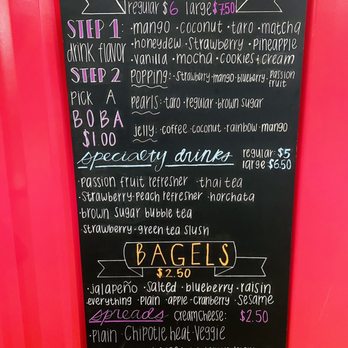 regular $6 large $7.50
STEP 1: · mango · coconut · taro · matcha
drink flavor · honeydew · strawberry · pineapple
· vanilla · mocha · cookies + cream
STEP 2 POPPING: · strawberry · mango · blueberry · passion fruit
PICK A pearls: · taro · regular · brown sugar
BOBA
$1.00 jelly: · coffee · coconut · rainbow · mango
specialty drinks regular: $5
large $6.50
· passion fruit refresher · thai tea
· strawberry-peach refresher · horchata
· brown sugar bubble tea
· strawberry-green tea slush
BAGELS
$2.50
· jalapeño · salted · blueberry · raisin
everything · plain · apple · cranberry · sesame
spreads creamcheese: $2.50
plain chipotle heat veggie